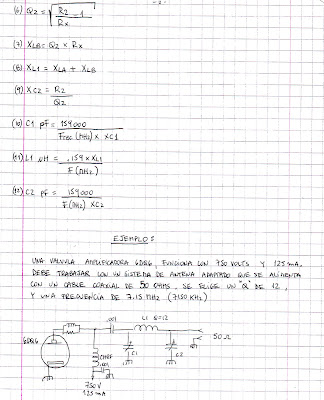 - 2 -
(6) Q2 = √(R2/RX - 1)
(7) XLB = Q2 x RX
(8) XL1 = XLA + XLB
(9) XC2 = R2/Q2
(10) C1 pF = 159000/Frec (MHz) x XC1
(11) L1 uH = .159 x XL1/F (MHz)
(12) C2 pF = 159000/F (MHz) XC2
EJEMPLO:
UNA VALVULA AMPLIFICADORA 6DQ6 FUNCIONA CON 750 VOLTS Y 125 mA.
DEBE TRABAJAR CON UN SISTEMA DE ANTENA ADAPTADO QUE SE ALIMENTA
CON UN CABLE COAXIAL DE 50 OHMS. SE ELIGE UN "Q" DE 12,
Y UNA FRECUENCIA DE 7.15 MHz (7150 KHz)
.001 L1 Q=12
6DQ6 50 Ω
CHRF C1 C2
.001
750 V
125 mA